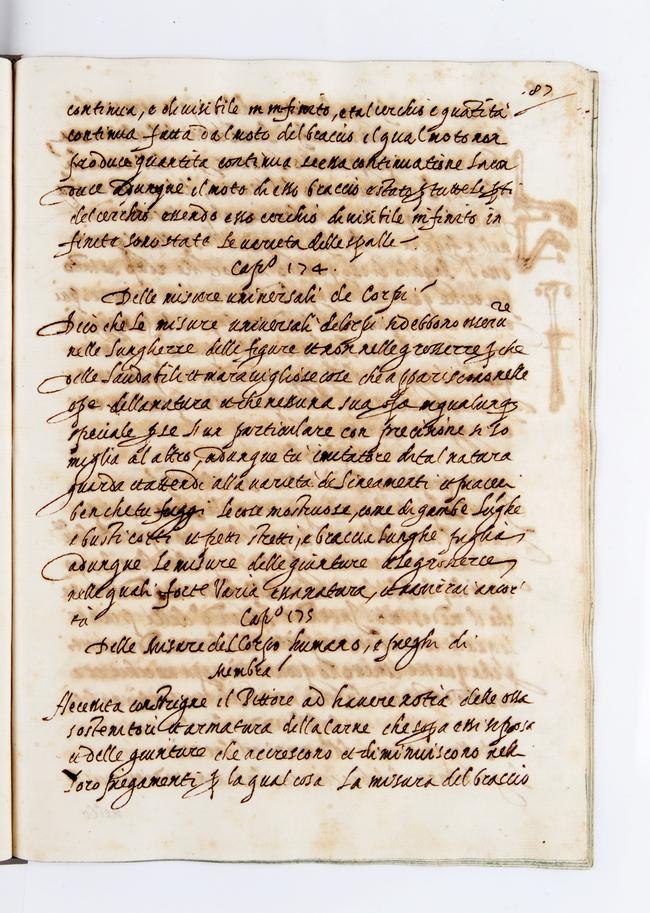 87
continua, e divisibile in infinito, e tal cerchio e quãtità
continua fatta dal moto del braccio il qual moto non
produce quantita continua se essa continuatione
duce adunque il moto di esso braccio e stato p tutte le pti
del cerchio essendo esso cerchio divisibile in infinito in
finite sono state le varieta delle spalle
Capº 174.
Delle misure universali de Corpi
Dicò che le misure universali de Corpi si debbono osseruare
nelle lunghezze delle figure et non nelle grossezze p che
delle laudabili et maravigliose cose che appariscono nelle
ope della natura è che nessuna sua opa in qualunq
speciale p se l'un particulare con precisione si so
miglia al altro, adunque tu imitatore di tal natura
guarda et attendi alla varietà de lineamenti et piacemi
ben che tu fuggi le cose mostruose, come di gambe lũghe
e busti corti et petti stretti, e braccia lunghe piglia
adunque le misure delle giunture et le grossezze
nelle quali forte varia essa natura, et varierai ancor
tù Capº 175
Delle Misure del Corpo humano, e pieghi di
Membra
Necessita constrigne il Pittore ad havere notitia delle ossa
sostenitori et armatura della carne che sopa essi si posa
et delle giunture che accrescono et diminuiscono nelli
loro piegamenti p la qual cosa la misura del braccio